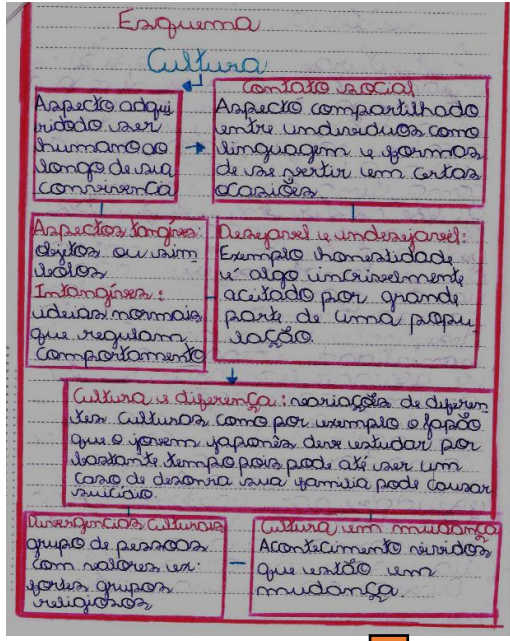 Esquema
Cultura
Aspecto adqui
ridodo ser
humano ao
longo de sua
convivencia
contato social
Aspecto compartilhado
entre individuos como
linguagem e formas
de se vestir em certas
ocasiões
Aspectos tangíves:
objetos ou sim
bolos
Intangíves:
ideias normais
que regulam
comportamento
Desejavel e indesejavél:
Exemplo honestidade
é algo incrivelmente
aceitado por grande
parte de uma popu
lação.
Cultura e diferença: variações de diferen
tes culturas como por exemplo o japão
que o jovem japonês deve estudar por
bastante tempo pois pode até ser um
caso de desonra sua familia pode causar
suicídio.
Divergências Culturais
grupo de pessoas
com valores ex:
fortes grupos
religiosos
Cultura em mudança
Acontecimento vividos
que estão em
mudança.